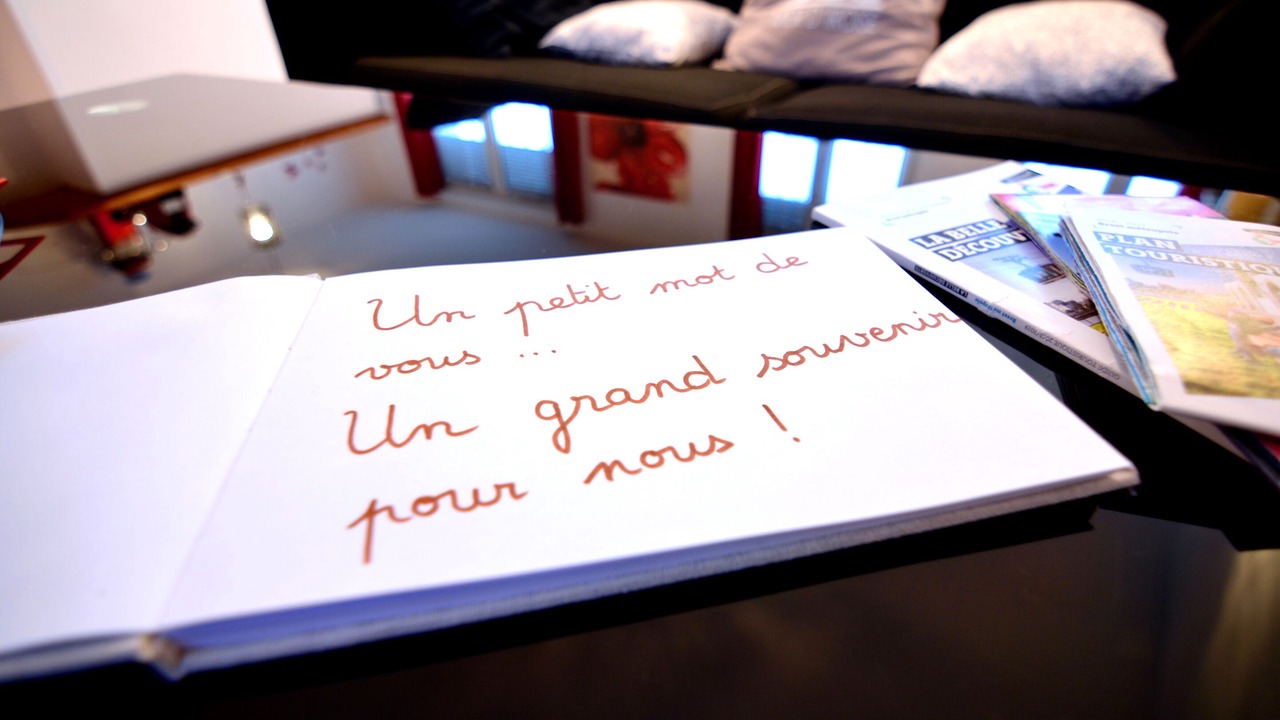 Un petit mot de
vous ...
Un grand souvenir
pour nous !
LA BELLE
DÉCOUV
PLAN
TOURISTIQU